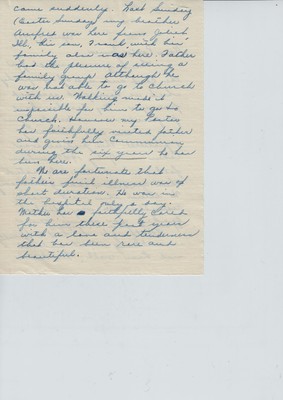 came suddenly. Last Sunday
(Easter Sunday) my brother
Alfred was here from Joliet
Ill., his son, & and his
family also was here. Father
had the pleasure of seeing a
family group although he
was not able to go to church
with us. Walking made it
impossible for him to go to
Church. However my Pastor
has faithfully visited father
and given him Communion
during the six years he has
been here.
We are fortunate that
father's final illness was of
short duration. He was in
the hospital only a day.
Mother has faithfully cared
for him these past years
with a love and tenderness
that has been rare and
beautiful.